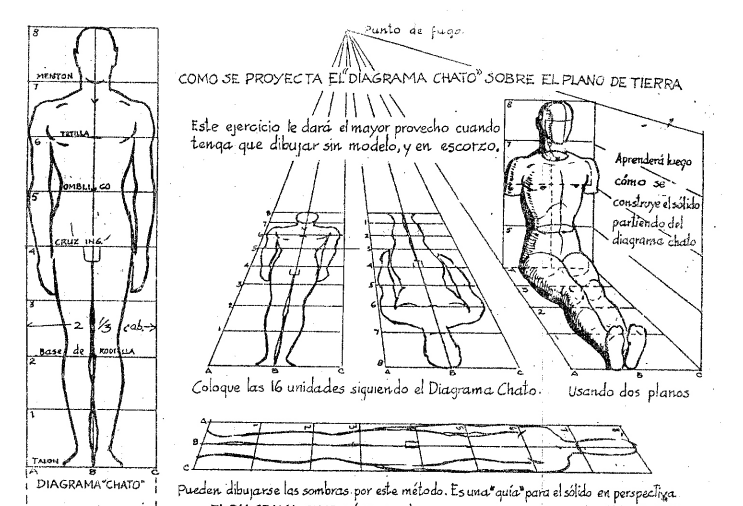 Punto de fuga.
COMO SE PROYECTA EL "DIAGRAMA CHATO" SOBRE EL PLANO DE TIERRA
Este ejercicio le dará el mayor provecho cuando
tenga que dibujar sin modelo, y en escorzo.
8
MENTON
7
TETILLA
6
OMBLIGO
5
CRUZ ING.
4
3
2 1/3 cab.
Base de RODILLA
2
1
TALON
A B C
DIAGRAMA "CHATO"
8
7
6
5
4
3
2
1
A B C
1
2
3
4
5
6
7
A B C
Coloque las 16 unidades siguiendo el Diagrama Chato.
8
7
5
3
2
A B C
Aprenderá luego
cómo se
construye el sólido
partiendo del
diagrama chato
Usando dos planos
A
B
C
1 2 3 4 5 6 7 8
Pueden dibujarse las sombras por este método. Es una "guía" para el sólido en perspectiva